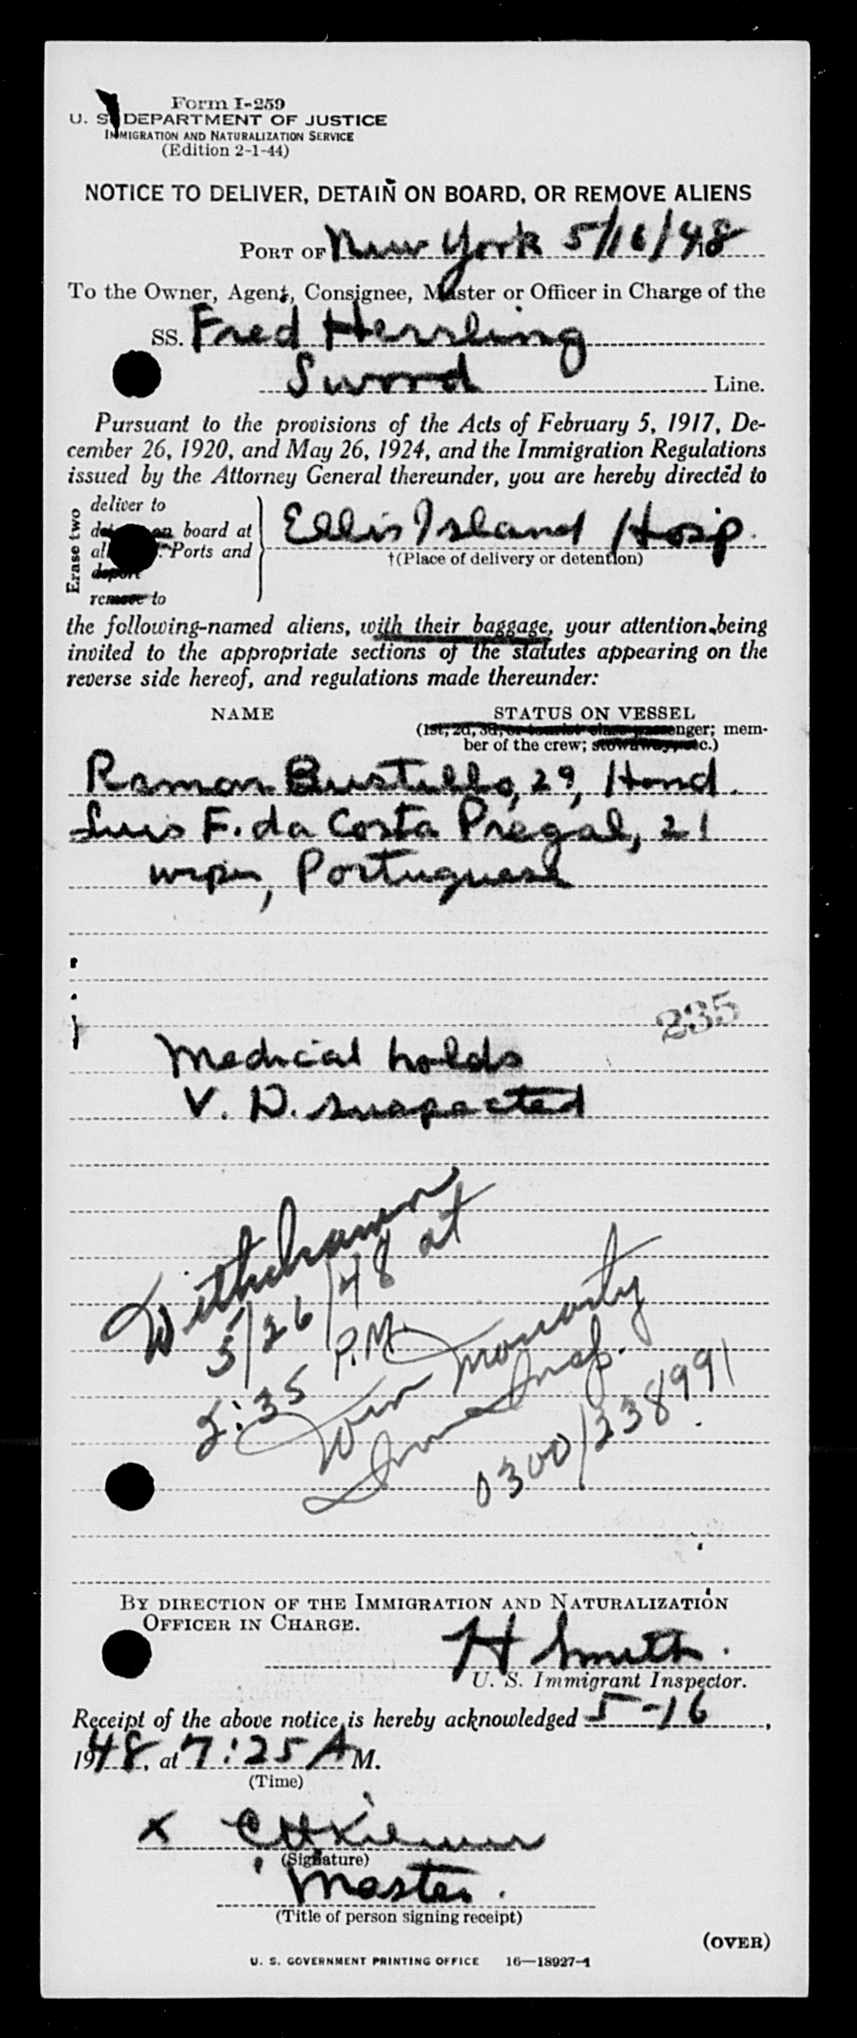 Form I-259
U. S. DEPARTMENT OF JUSTICE
IMMIGRATION AND NATURALIZATION SERVICE
(Edition 2-1-44)
NOTICE TO DELIVER, DETAIN ON BOARD, OR REMOVE ALIENS
PORT OF New York 5/16/48
To the Owner, Agent, Consignee, Master or Officer in Charge of the
SS. Fred Herrling
Sword Line.
Pursuant to the provisions of the Acts of February 5, 1917, De-
cember 26, 1920, and May 26, 1924, and the Immigration Regulations
issued by the Attorney General thereunder, you are hereby directed to
Erase two
deliver to
board at
Ports and
deport
remove to
Ellis Island Hosp.
†(Place of delivery or detention)
the following-named aliens, with their baggage, your attention being
invited to the appropriate sections of the statutes appearing on the
reverse side hereof, and regulations made thereunder:
NAME STATUS ON VESSEL
(1st, 2d, 3d, or tourist class passenger; mem-
ber of the crew; stowaway, etc.)
Ramon Bustillo, 29, Hond.
Luis F. da Costa Pregal, 21
wiper, Portuguese
235
Medical holds
V. D. suspected
Withdrawn
5/26/48 at
2:35 P.M.
Wm Moriarty
Imm Insp.
0300/238991
BY DIRECTION OF THE IMMIGRATION AND NATURALIZATION
OFFICER IN CHARGE.
H Smith.
U. S. Immigrant Inspector.
Receipt of the above notice is hereby acknowledged 5-16,
1948, at 7:25 A M.
(Time)
x
(Signature)
Master.
(Title of person signing receipt)
(OVER)
U. S. GOVERNMENT PRINTING OFFICE 16—18927-1